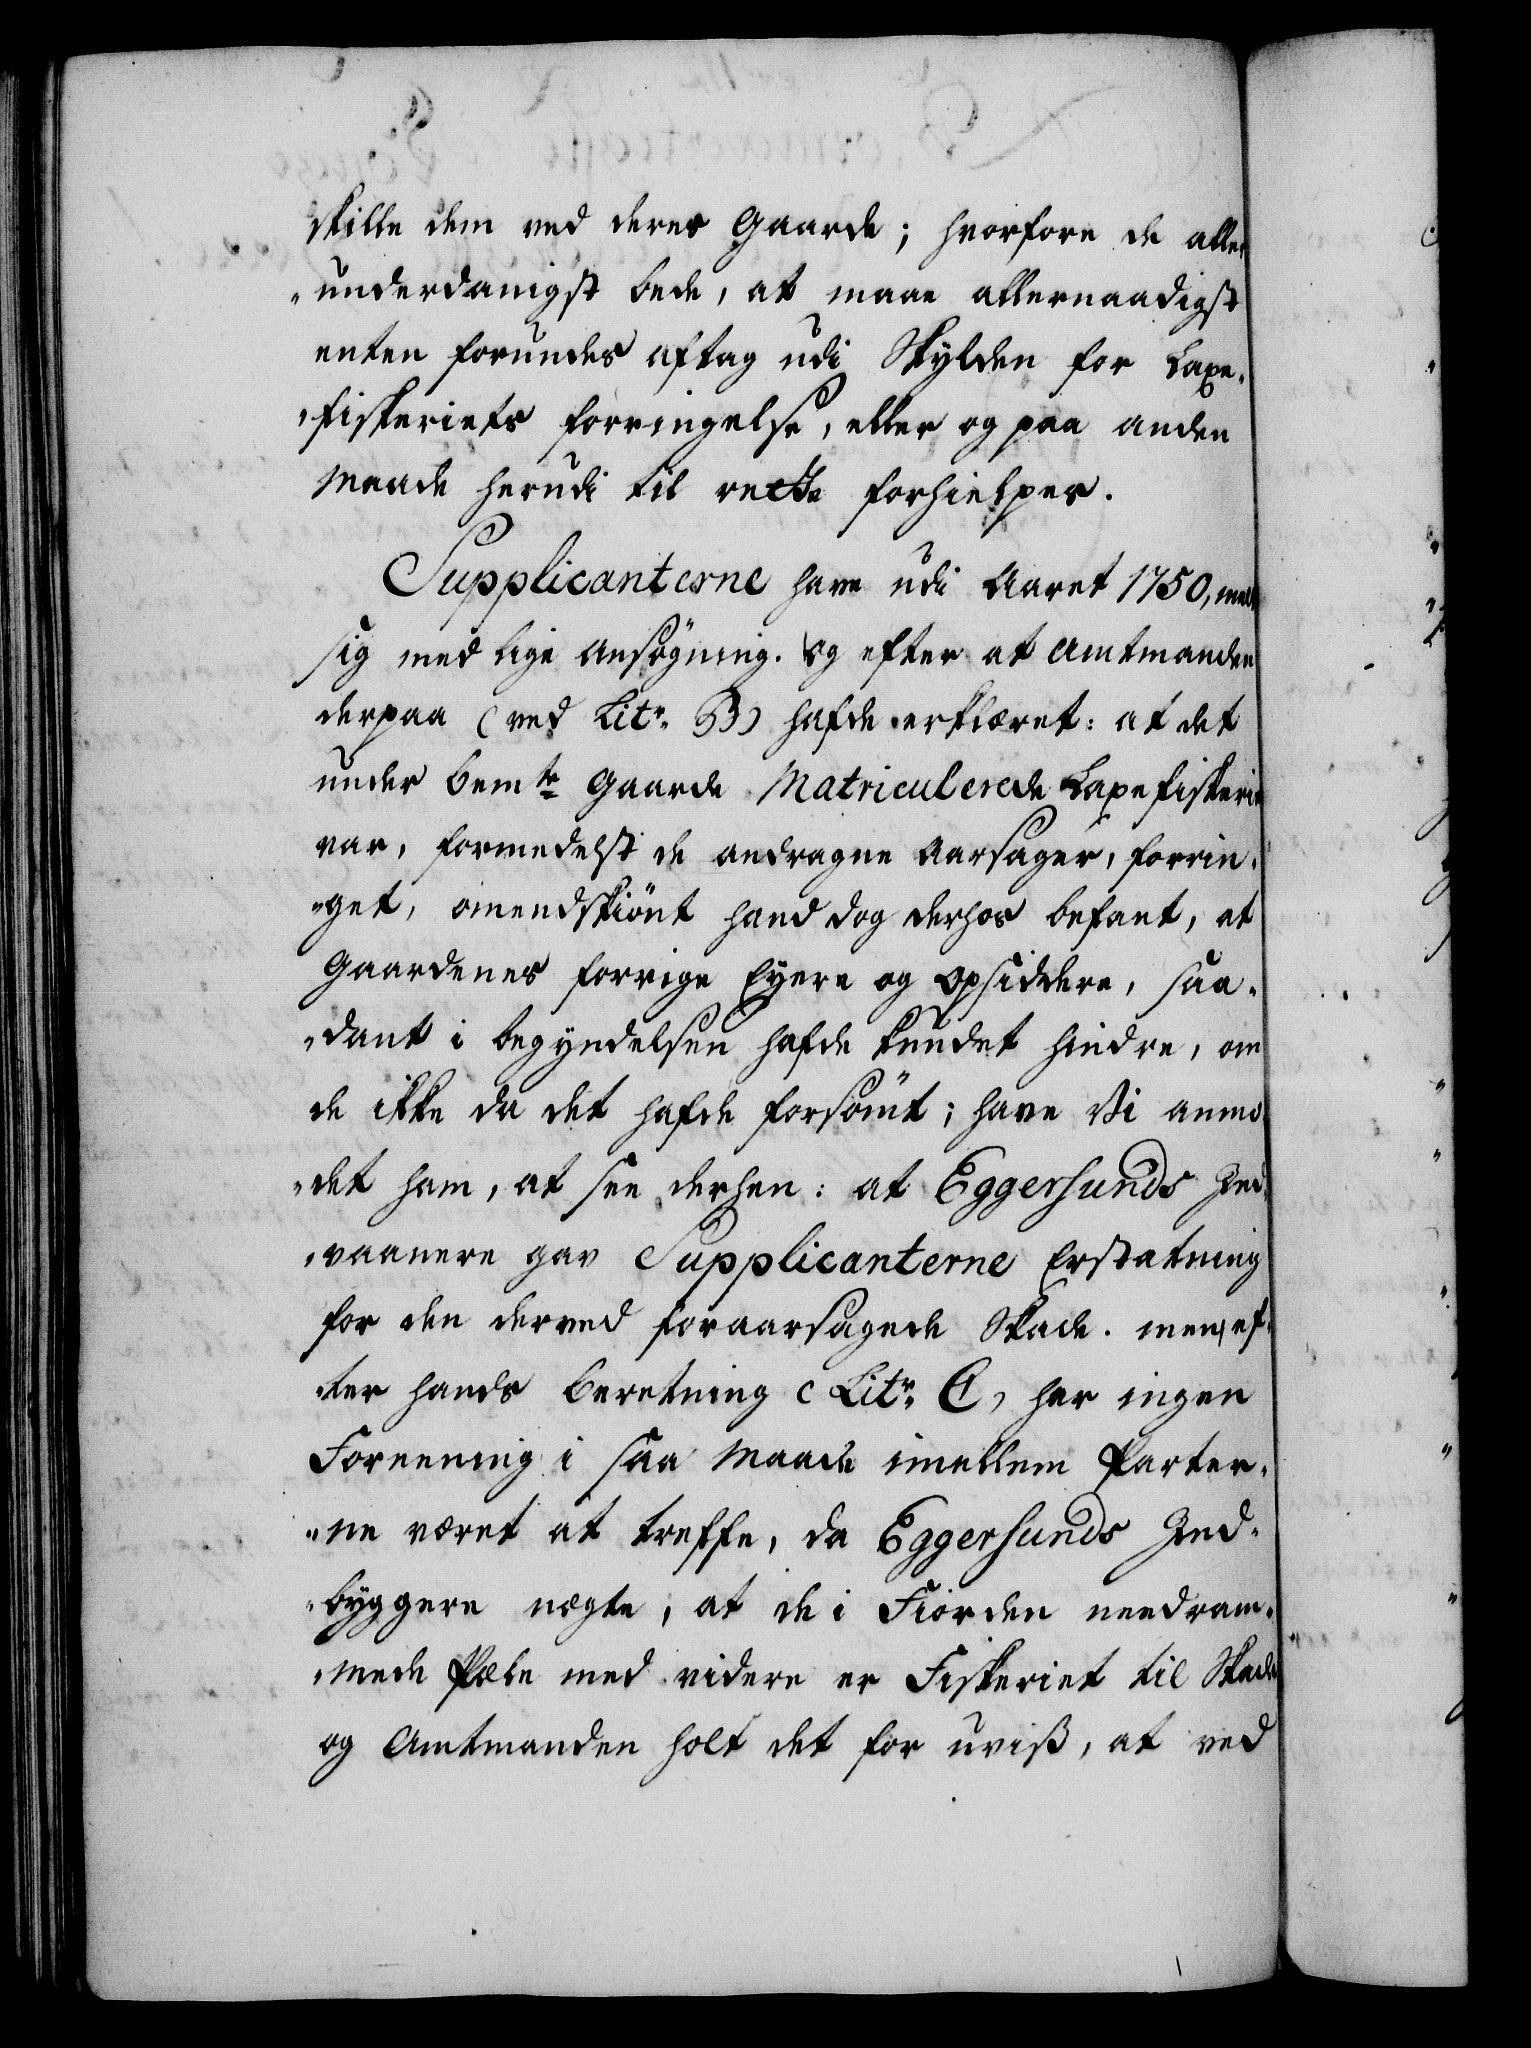 skille dem ved deres Gaarde; hvorfore de aller
„underdanigst bede, at maae allernaadigst
enten forundes aftag udi Skylden for Laxe„
„fiskeriets forringelse, eller og paa anden
Maade herudi til rette forhielpes.
Supplicanterne have udi Aaret 1750, meldt
sig med lige Ansøgning. Og efter at Amtmanden
derpaa (ved Litr. B) hafde erklæret: at det
under bemte Gaarde Matriculerede Laxefiskerie
var, formedelst de andragne Aarsager, forrin„
„get, omendskiønt hand dog derhos befant, at
Gaardenes forrige Eyere og Opsiddere, saa„
„dant i begyndelsen hafde kundet hindre, om
de ikke da det hafde forsømt; have Vi anmo
„det ham, at see derhen: at Eggersunds Ind„
„vaanere gav Supplicanterne Erstatning
for den derved foraarsagede Skade. men, ef„
„ter hands Beretning (Litr. C) har ingen
Foreening i saa Maade imellem Parter„
„ne været at treffe, da Eggersunds Ind„
„byggere nægte, at de i Fiorden needram„
„mede Pæle med videre er Fiskeriet til Skade
og Amtmanden holt det for uviß, at ved